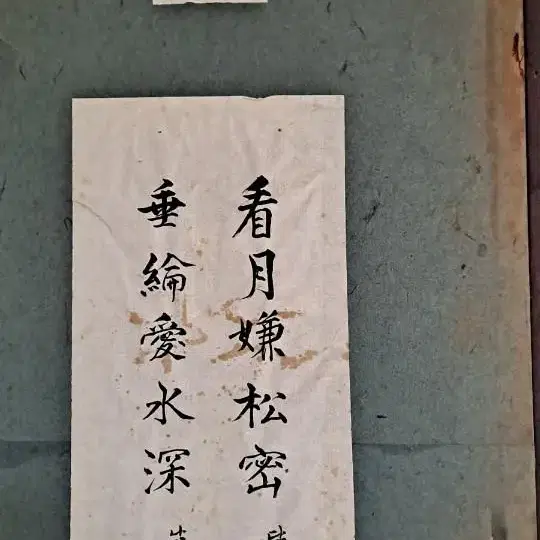 看月嫌松密
垂綸愛水深